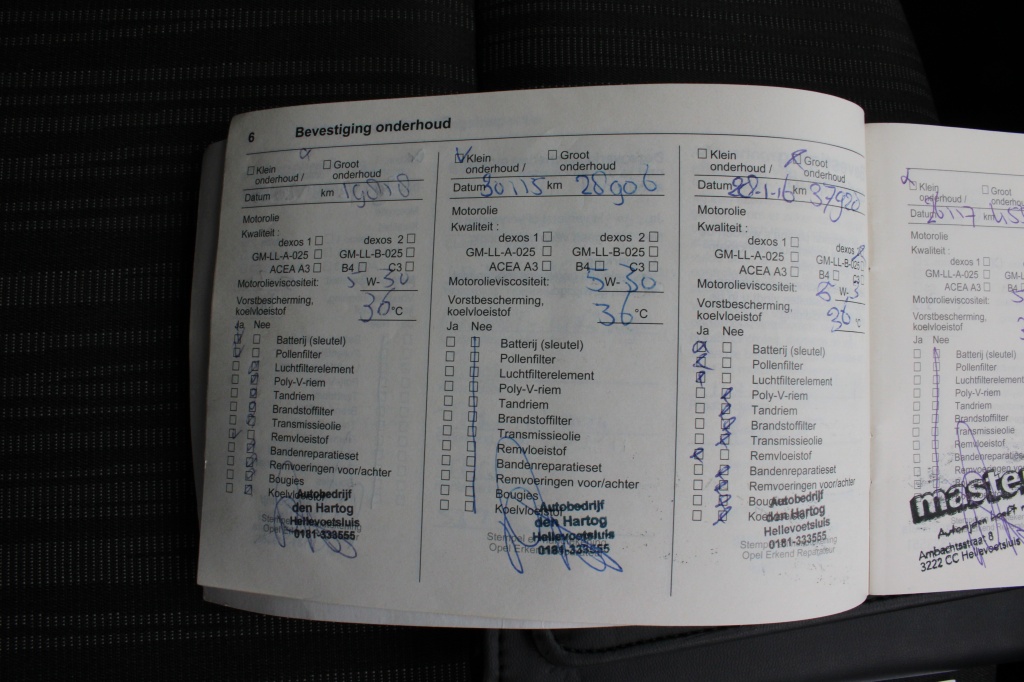 6 Bevestiging onderhoud
Klein onderhoud /
Groot onderhoud
Datum km 19818
Motorolie
Kwaliteit :
dexos 1 dexos 2
GM-LL-A-025 GM-LL-B-025
ACEA A3 B4 C3
Motorolieviscositeit: 5 W-30
Vorstbescherming,
koelvloeistof 36 °C
Ja Nee
Batterij (sleutel)
Pollenfilter
Luchtfilterelement
Poly-V-riem
Tandriem
Brandstoffilter
Transmissieolie
Remvloeistof
Bandenreparatieset
Remvoeringen voor/achter
Bougies
Koelvloeistof
Autobedrijf
den Hartog
Hellevoetsluis
0181-333555
Klein onderhoud /
Groot onderhoud
Datum 30115 km 28906
Motorolie
Kwaliteit :
dexos 1 dexos 2
GM-LL-A-025 GM-LL-B-025
ACEA A3 B4 C3
Motorolieviscositeit: 5 W-30
Vorstbescherming,
koelvloeistof 36 °C
Ja Nee
Batterij (sleutel)
Pollenfilter
Luchtfilterelement
Poly-V-riem
Tandriem
Brandstoffilter
Transmissieolie
Remvloeistof
Bandenreparatieset
Remvoeringen voor/achter
Bougies
Koelvloeistof
Autobedrijf
den Hartog
Hellevoetsluis
0181-333555
Stempel
Opel Erkend
Klein onderhoud /
Groot onderhoud
Datum 28-1-16 km 37920
Motorolie
Kwaliteit :
dexos 1 dexos
GM-LL-A-025 GM-LL-B-025
ACEA A3 B4 C3
Motorolieviscositeit: 5 W-3
Vorstbescherming,
koelvloeistof 36 °C
Ja Nee
Batterij (sleutel)
Pollenfilter
Luchtfilterelement
Poly-V-riem
Tandriem
Brandstoffilter
Transmissieolie
Remvloeistof
Bandenreparatieset
Remvoeringen voor/achter
Bougies
Autobedrijf
den Hartog
Hellevoetsluis
0181-333555
Stempel
Opel Erkend Reparateur
Klein onderhoud /
Groot
Datum km
Motorolie
Kwaliteit :
dexos 1
GM-LL-A-025
ACEA A3 B4
Motorolieviscositeit:
Vorstbescherming,
koelvloeistof
Ja Nee
Batterij (sleutel)
Pollenfilter
Luchtfilterelement
Poly-V-riem
Tandriem
Brandstoffilter
Transmissieolie
Remvloeistof
Bandenreparatieset
Remvoeringen
Ambachtsstraat 8
3222 CC Hellevoetsluis